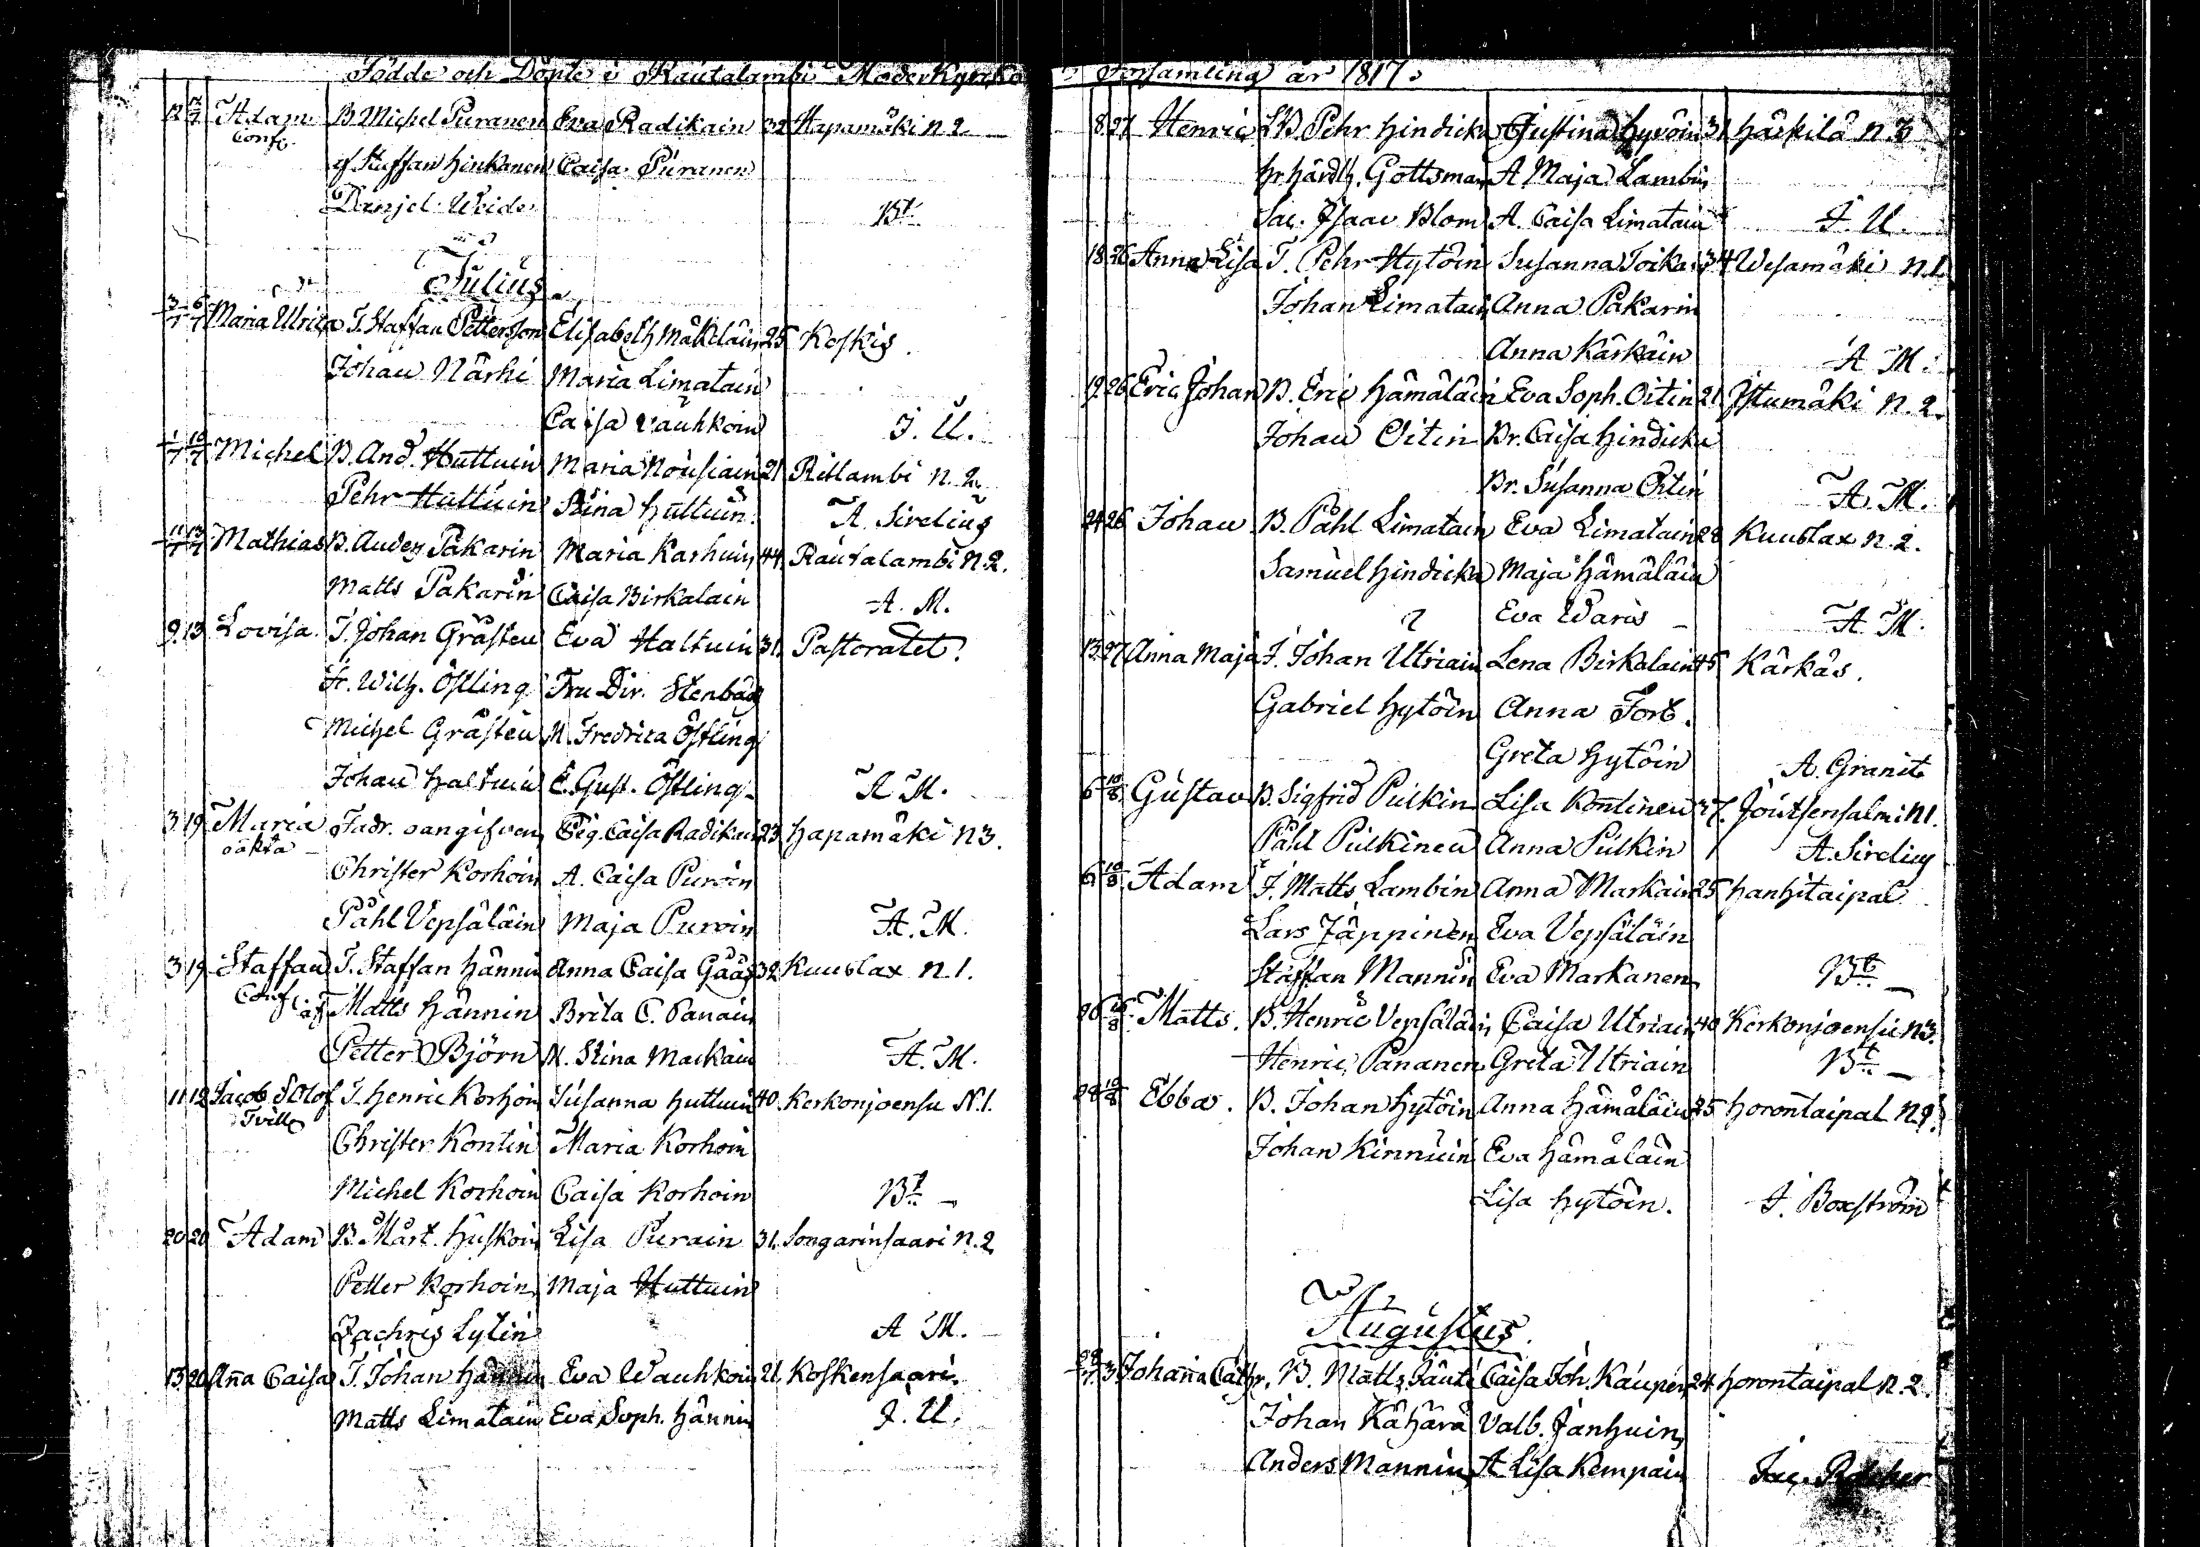 Födde och Döpte i Rautalambi Moder Kyrko
12 12/7 Adam B. Michel Puranen Eva Radikain 32 Hapamäki n 2
Conf. Staffan Hinkanen Caisa Puranen
Danjel Bt
Julius
3/7 6/7 Maria Ulrica T. Staffan Pettersson Elisabeth Mäkeläin 25 Koskis.
Johan Närhi Maria Limatain
Caisa Vauhkoin J. U.
1/7 10/7 Michel B. And. Huttuin Maria Nousiain 21 Ritlambi n. 2.
Pehr Huttuin Stina Huttuin A. Sirelius
11/7 13/7 Mathias B. Anders Pakarin Maria Karhuin 44 Rautalambi N. 2.
Matts Pakarin Caisa Birkalain A. M.
9. 13 Lovisa. T. Johan Gråsten Eva Haltuin 31. Pastoratet.
Fr. Wilh. Östling Fru Dir. Stenbäck
Michel Gråsten M. Fredrica Östling
Johan Haltuin C. Gust. Östling A M.
3 19 Maria Fadr. oangifven Pig. Caisa Radikain 23 Hapamäki N 3.
oäkta Christer Korhoin A. Caisa Puroin
Påhl Vepsäläin Maja Puroin A. M.
3 19 Staffan T. Staffan Hännin Anna Caisa Gåås 32 Kuuslax n. 1.
Matts Hännin Brita C. Panain
Petter Björn M. Stina Markain A. M.
11 12 Jacob & Olof T. Henric Korhoin Susanna Huttuin 40. Kerkonjoensu N. 1.
Tvill Christer Kontin Maria Korhoin
Michel Korhoin Caisa Korhoin Bt
20 20 Adam B. Mårt. Huskoin Lisa Purain 31. Songarinsaari N. 2
Petter Korhoin Maja Huttuin
Zachris Lytin A M.
13 20 Anna Caisa T. Johan Hännin Eva Wauhkoin 21. Koskensaari.
Matts Limatain Eva Soph. Hännin J. U.
Församling år 1817.
8. 27 Henric B. Pehr Hindickn Justina Hyvöin 31 Häckilä N. 3
Hr. Härdh. Gottsman A Maja Lambin
Jac. Isaac Blom A. Caisa Limatain J. U.
18 26 Anna Lisa T. Pehr Hytöin Susanna Toika 34 Wesamäki N. 1.
Johan Limatain Anna Pakarin
Anna Kärkäin A M.
19. 26 Eric Johan B. Eric Hämäläin Eva Soph. Oitin 21 Istumäki N. 2.
Johan Oitin Br. Caisa Hindickn
Br. Susanna Oitin A. M.
24 26 Johan B. Påhl Limatain Eva Limatain 28 Kuuslax N. 2.
Samuel Hindickn Maja Hämäläin
Eva Waris A M.
13. 27 Anna Maja T. Johan Utriain Lena Birkalain 45 Kärkäs.
Gabriel Hytöin Anna Fort.
Greta Hytöin A. Granit
6 10/8 Gustav B. Sigfrid Pulkin Lisa Kontinen 37. Joutsensalmi N 1.
Påhl Pulkinen Anna Pulkin A. Sirelius
6 10/8 Adam T. Matts Lambin Anna Markain 25 Hanhitaipal
Lars Jäppinen Eva Vepsäläin
Staffan Mannin Eva Markanen Bt
26 10/8 Matts. B. Henric Vepsäläin Caisa Utriain 40 Kerkonjoensu N 3.
Henric Pananen Greta Utriain Bt
28 10/8 Ebba. B. Johan Hytöin Anna Hämäläin 25 Horontaipal N. 2.
Johan Kinnuin Eva Hämäläin
Lisa Hytöin. J. Boxström
Augustus.
28/7 3 Johanna Cathr. B. Matts Jäut Caisa Joh. Kaupin 24 Horontaipal N. 2.
Johan Kähärä Valb. Janhuin
Anders Mannin A Lisa Kempain Jac.